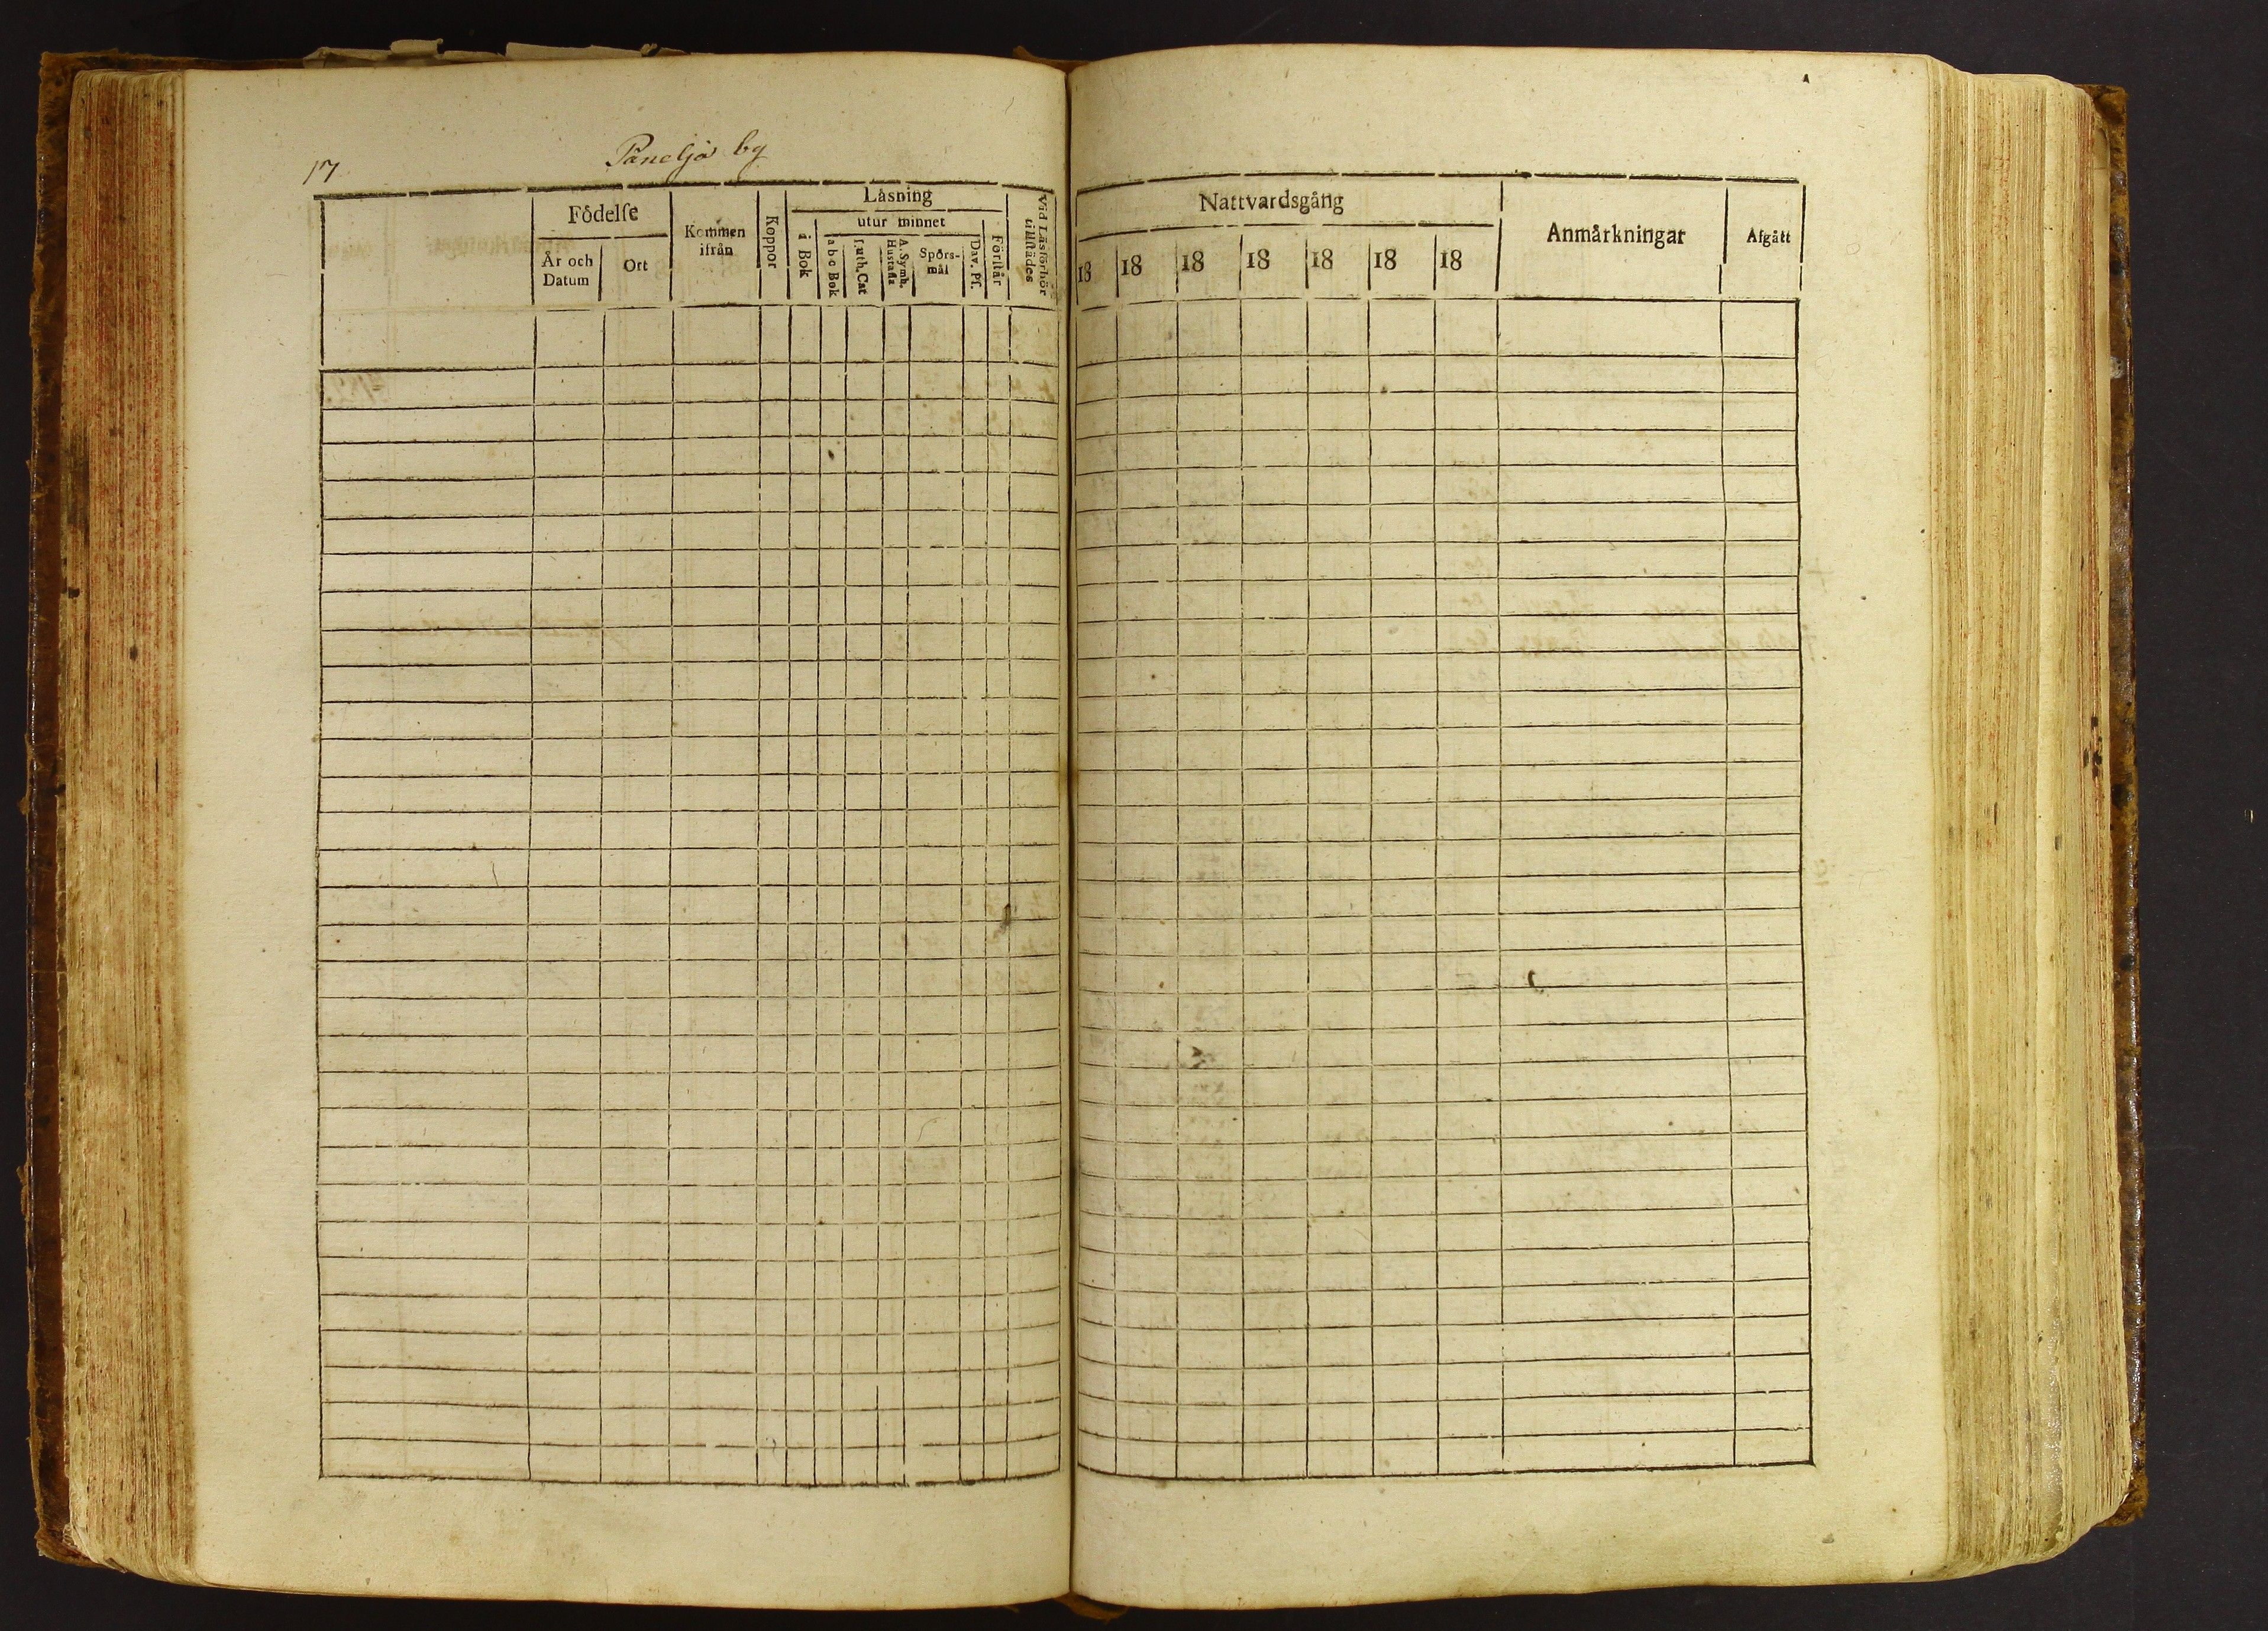 17
Påneljö by
Födelse
År och Datum
Ort
Kommen ifrån
Koppor
Läsning
i Bok
utur minnet
a b c Bok
Luth. Cat
A. Symb. Hustafla
Spörsmål
Dav. Ps.
Förstår
Vid Läsförhör tillstädes
Nattvardsgång
18 18 18 18 18 18 18
Anmärkningar
Afgått